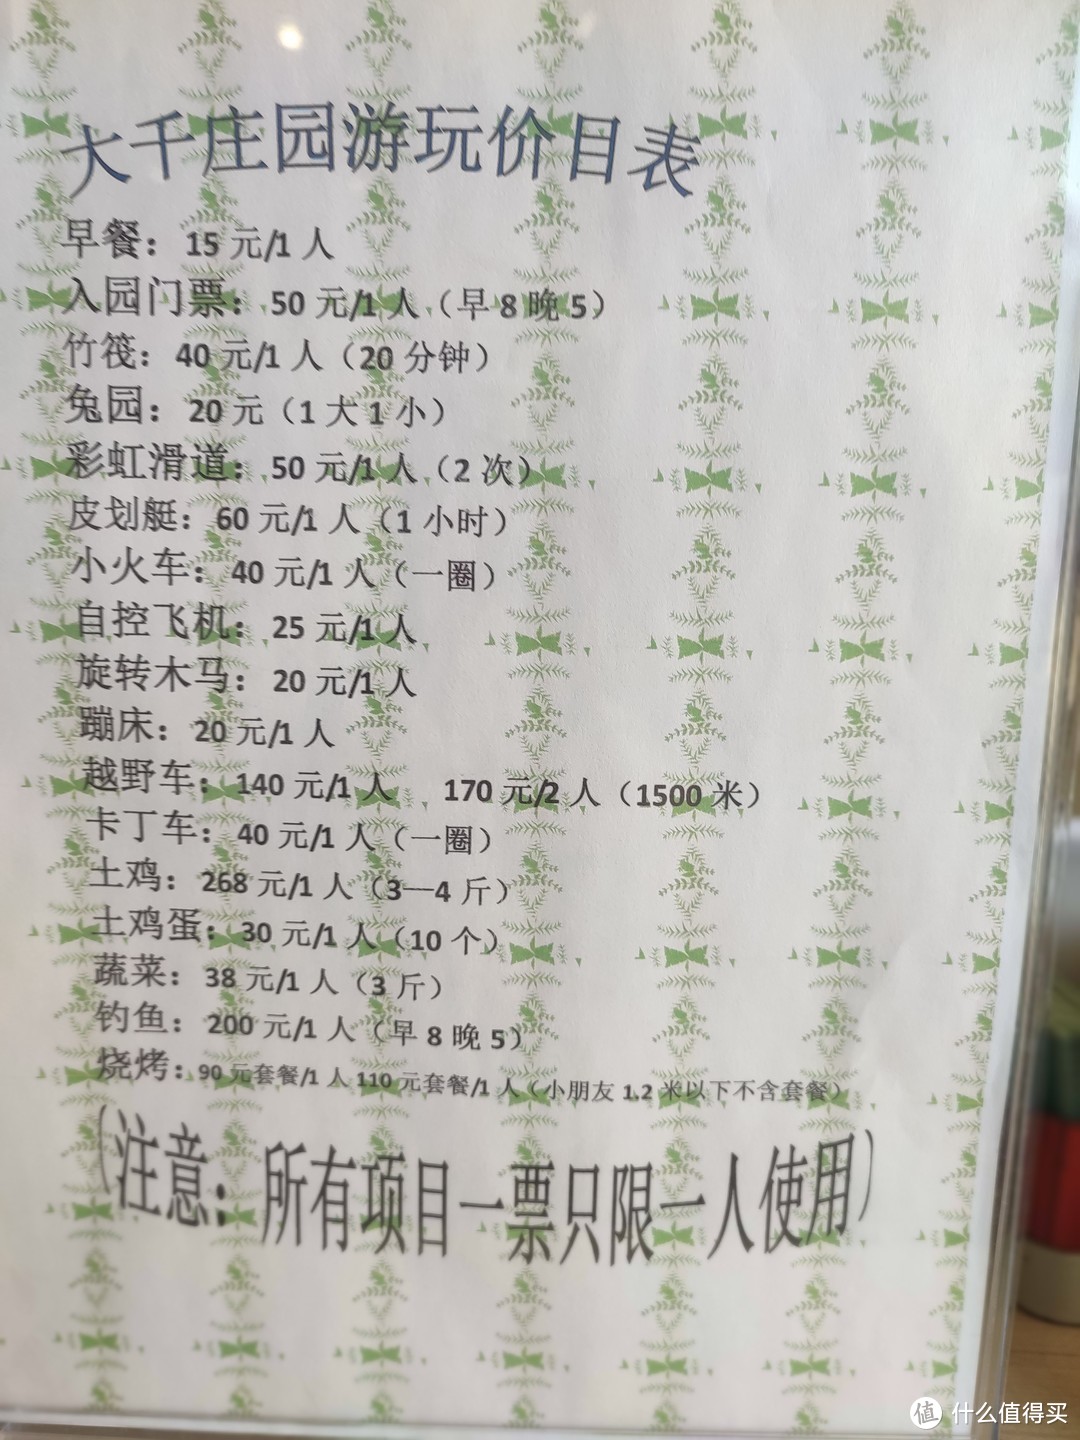 大千庄园游玩价目表
早餐：15 元/1 人
入园门票：50 元/1 人（早 8 晚 5）
竹筏：40 元/1 人（20 分钟）
兔园：20 元（1 大 1 小）
彩虹滑道：50 元/1 人（2 次）
皮划艇：60 元/1 人（1 小时）
小火车：40 元/1 人（一圈）
自控飞机：25 元/1 人
旋转木马：20 元/1 人
蹦床：20 元/1 人
越野车：140 元/1 人 170 元/2 人（1500 米）
卡丁车：40 元/1 人（一圈）
土鸡：268 元/1 人（3—4 斤）
土鸡蛋：30 元/1 人（10 个）
蔬菜：38 元/1 人（3 斤）
钓鱼：200 元/1 人（早 8 晚 5）
烧烤：90 元套餐/1 人 110 元套餐/1 人（小朋友 1.2 米以下不含套餐）
（注意：所有项目一票只限一人使用）
值 什么值得买